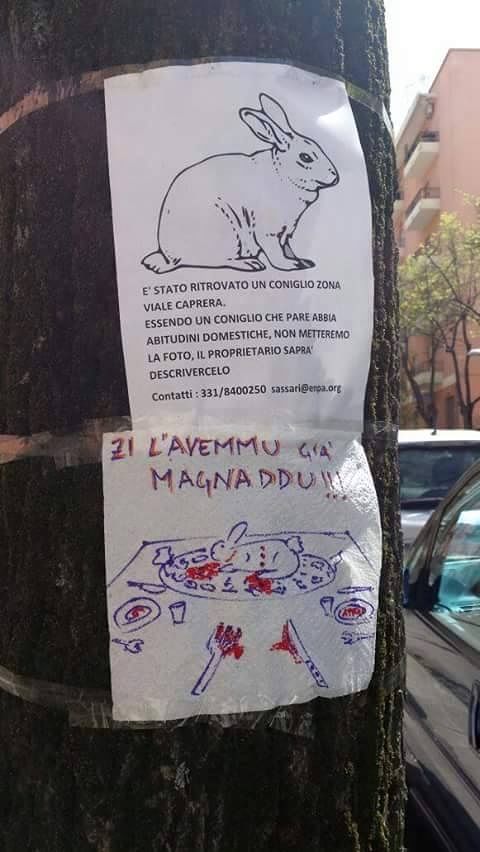 E' STATO RITROVATO UN CONIGLIO ZONA
VIALE CAPRERA.
ESSENDO UN CONIGLIO CHE PARE ABBIA
ABITUDINI DOMESTICHE, NON METTEREMO
LA FOTO, IL PROPRIETARIO SAPRA'
DESCRIVERCELO
Contatti : 331/8400250 sassari@enpa.org
ZI L'AVEMMU GIA'
MAGNADDU!!!